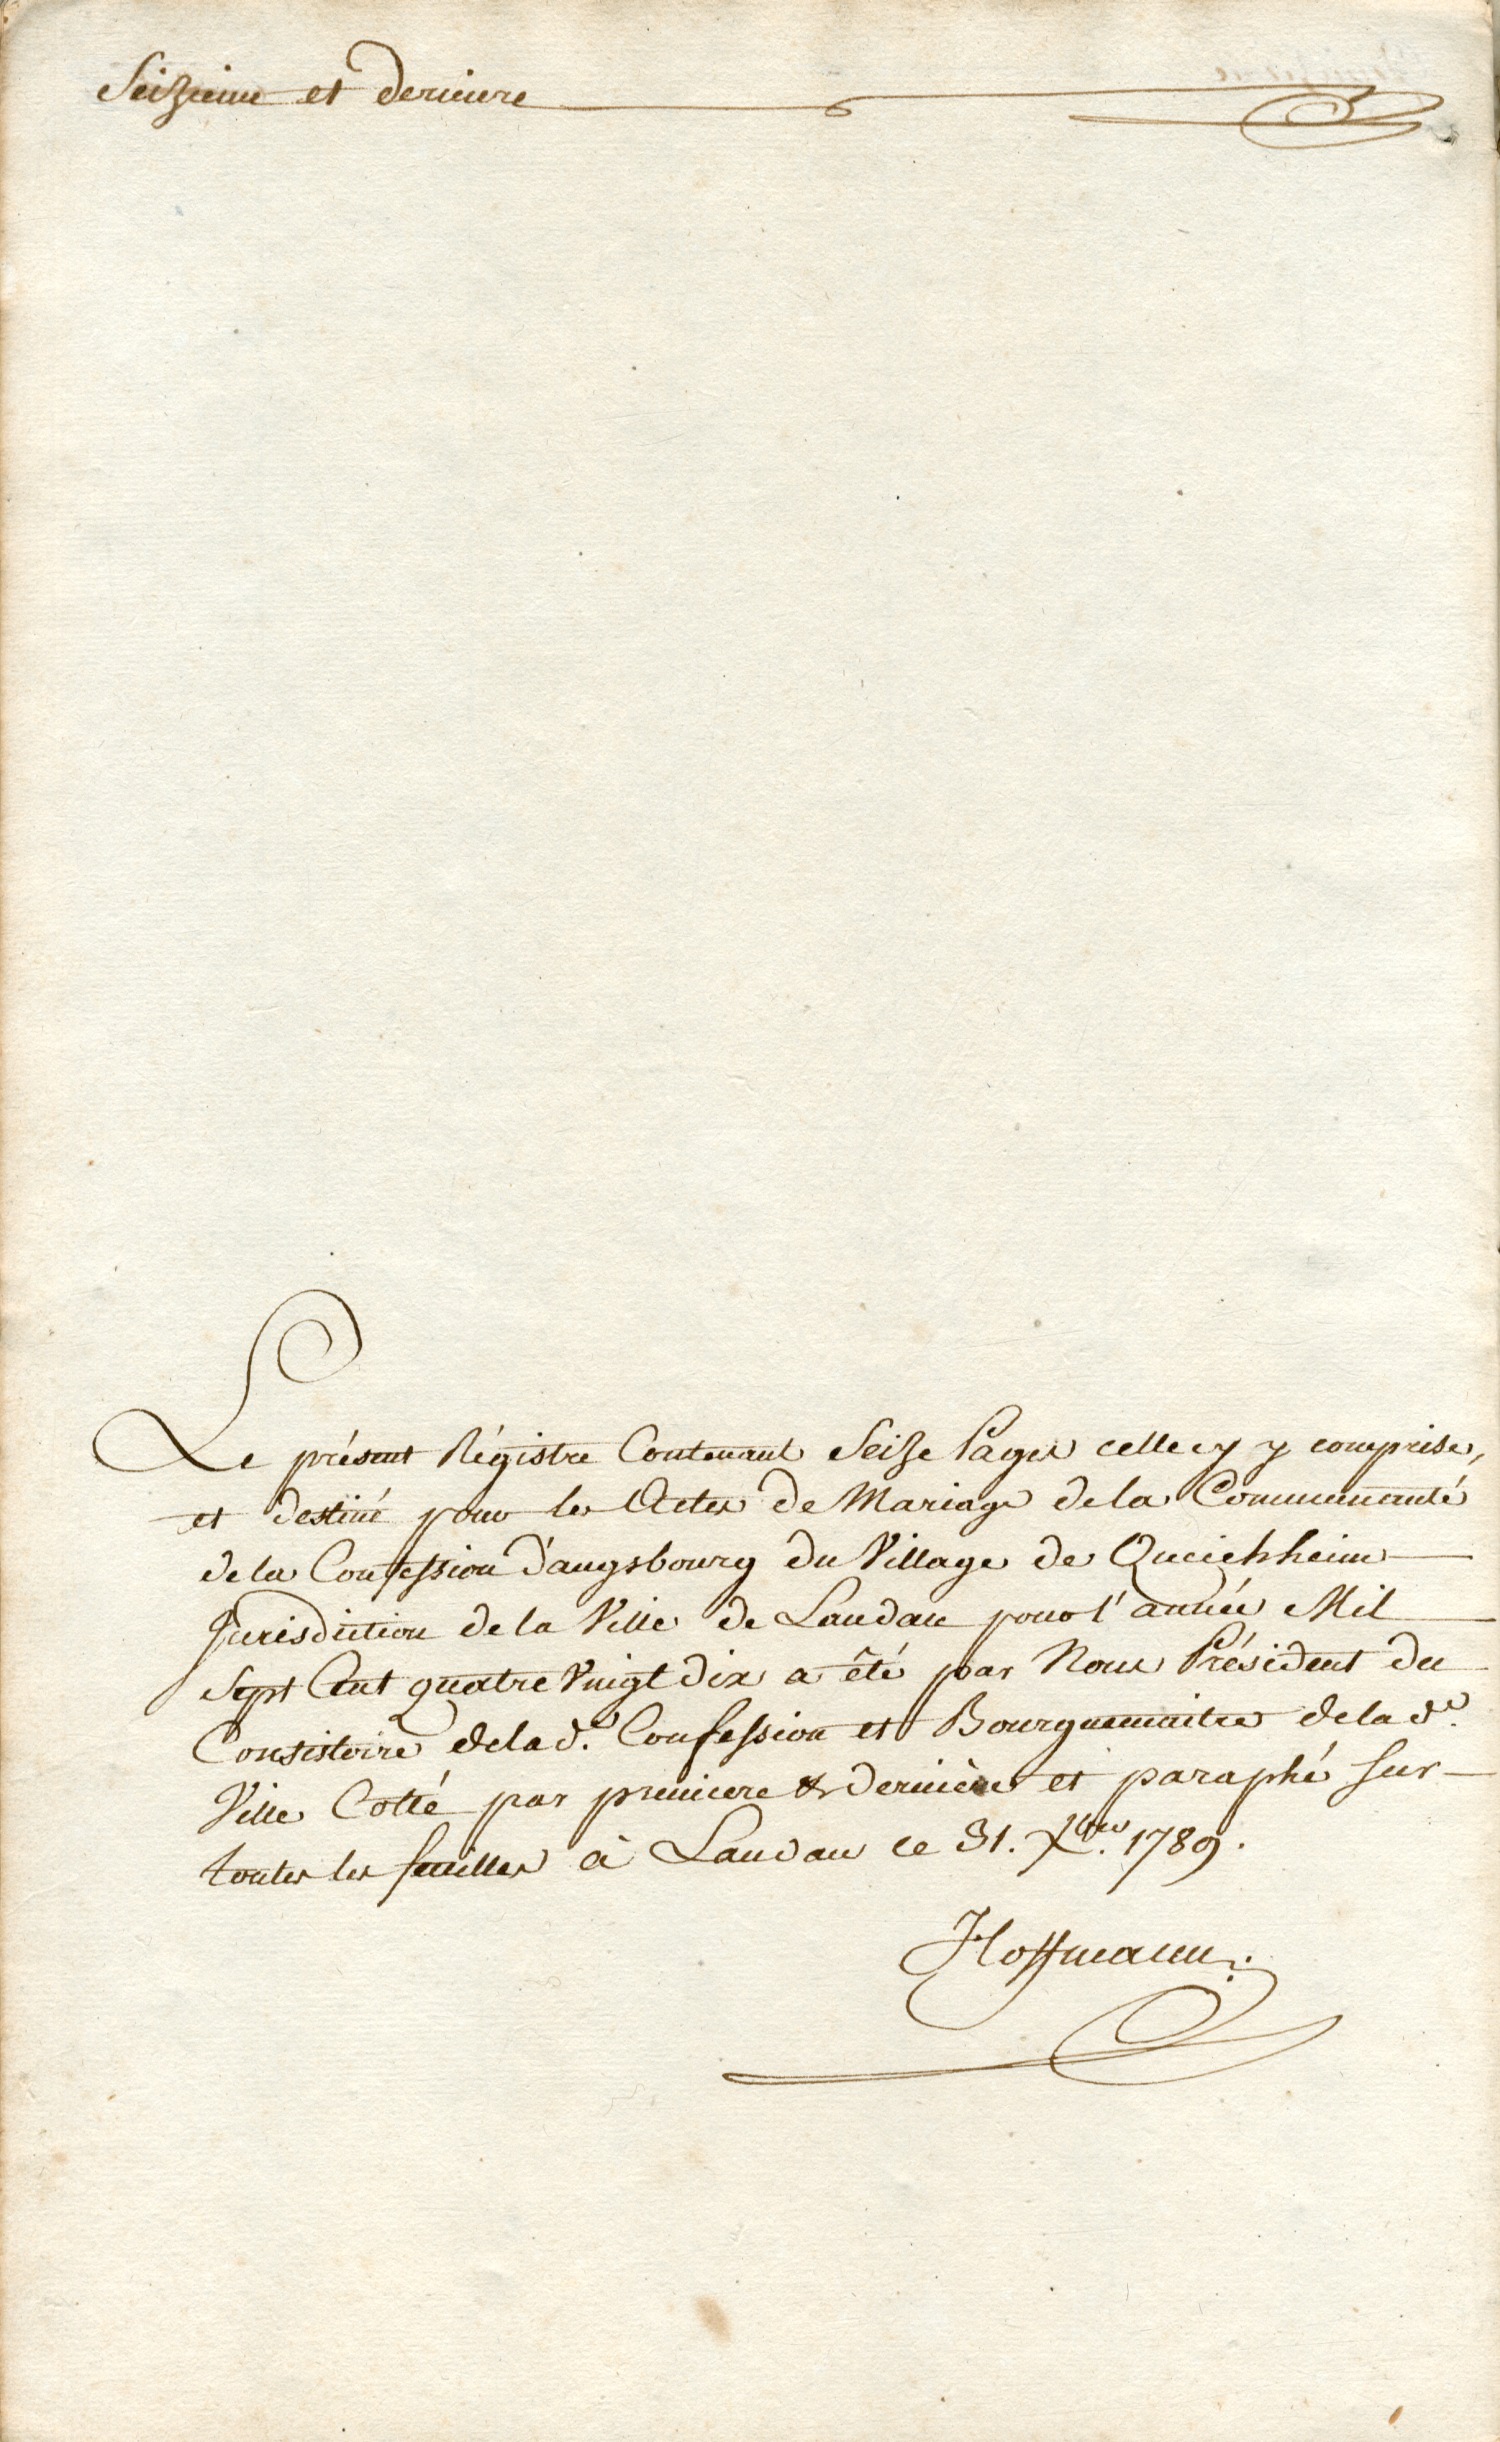 Seizieme et derniere
Le présent Régistre Contenant Seize Pages celle cy y comprise,
et destiné pour les Actes de Mariage de la Communauté
de la Confession d'augsbourg du Village de Queichheim
Jurisdiction de la Ville de Landau pour l'année Mil
Sept Cent quatre Vingt dix a êté par Nous Président du
Consistoire de la d.e Confession et Bourguemaitre de la d.e
Ville Cotté par premiere & derniere et paraphé sur
toutes les feuilles à Landau ce 31. Xbre. 1789.
Hoffmann.